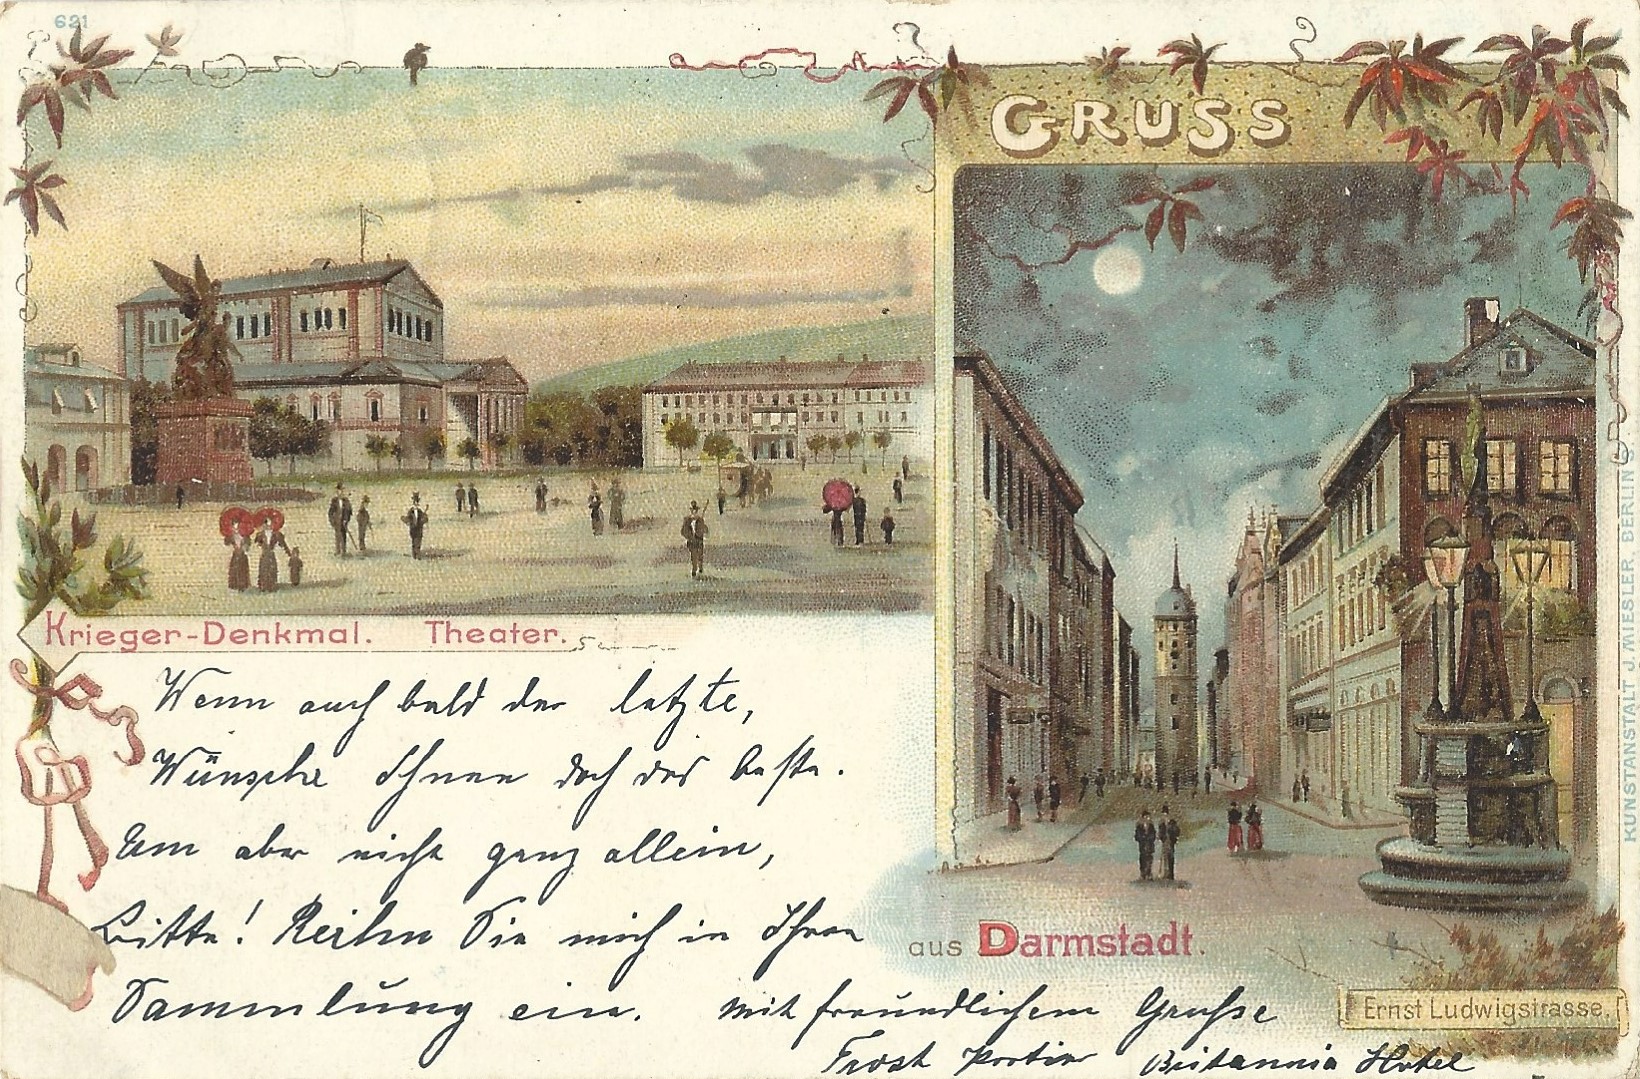 621
GRUSS
Krieger-Denkmal. Theater.
Wenn auch bald der letzte,
Wünsche Ihnen doch das beste.
Um aber nicht ganz allein,
Bitte! Reihen Sie mich in Ihren
Sammlung ein. Mit freundlichem Grusse
Frost Portier Britannia Hotel
aus Darmstadt.
Ernst Ludwigstrasse.
KUNSTANSTALT J. MIESLER, BERLIN S.